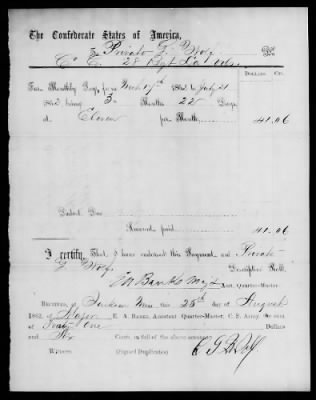 The Confederate States of America,
To Private F. Wolf Dr.
Co. C. 28 Regt La Vols.
DOLLARS CTS.
For Monthly Pay, from Mch 17th 1862 to July 21
1862 being 3 Months 22 Days
at Eleven per Month, 41.06
Deduct Due
Received paid 41.06
I certify, That I have endorsed this Payment and Private
F. Wolf Descriptive Roll.
E A Banks Maj & Asst. Quarter-Master
RECEIVED, at Jackson Miss this 28th of August
1862, of Major E. A. BANKS, Assistant Quarter-Master, C. S. Army, the sum
of Forty One Dollars
and Six Cents, in full of the above account.
WITNESS. (Signed Duplicates)